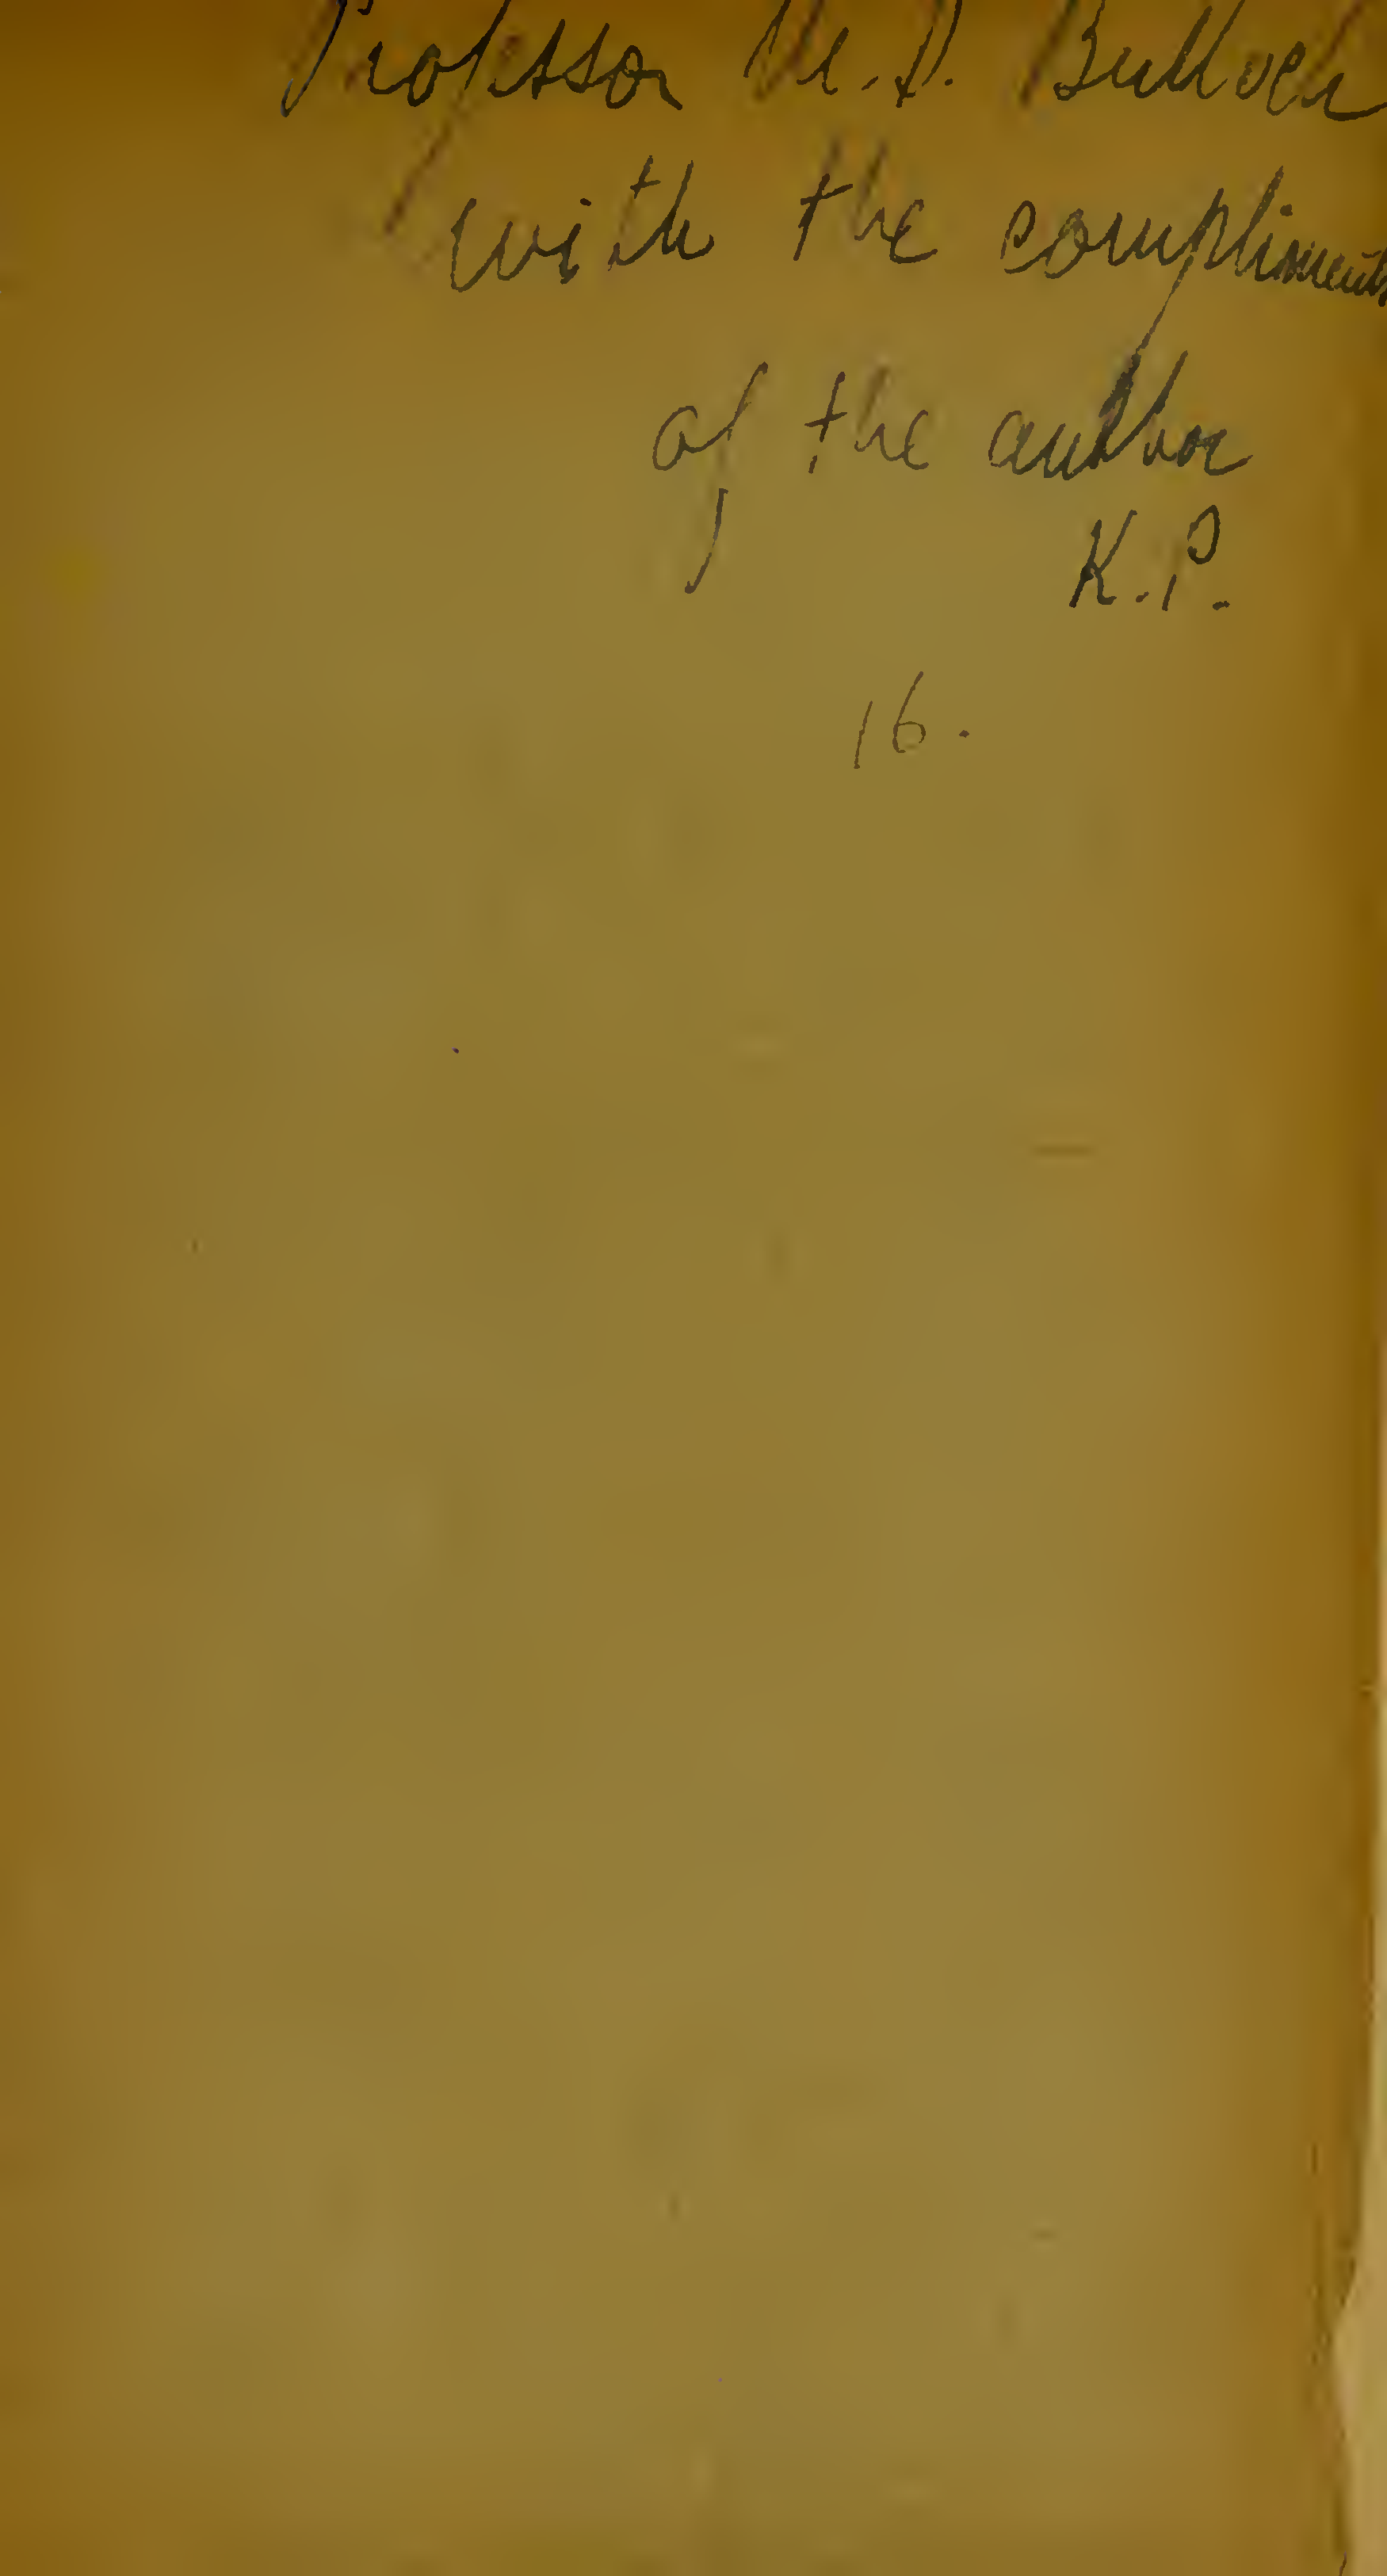 Professor W. D. Bulloch
with the compliments
of the author
K.P.
16.